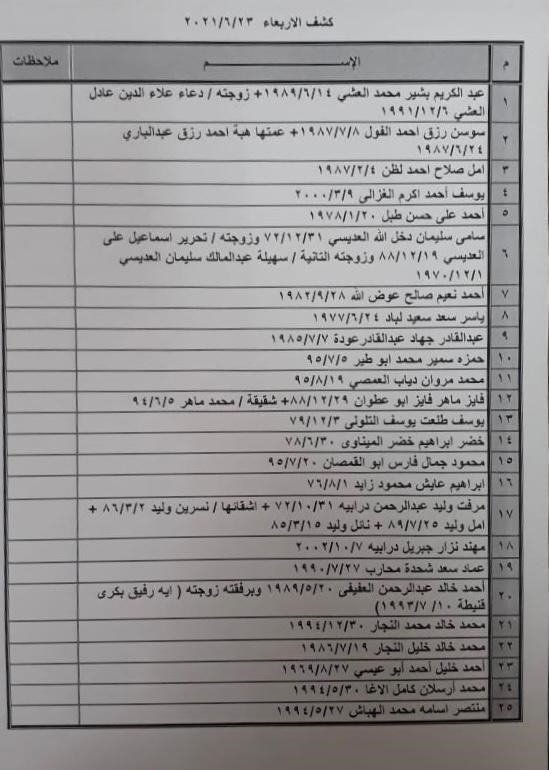 كشف الاربعاء ٢٠٢١/٦/٢٣
م الإســـم ملاحظات
١ عبد الكريم بشير محمد العشي ١٩٨٩/٦/١٤+ زوجته / دعاء علاء الدين عادل
العشي ١٩٩١/١٢/٦
٢ سوسن رزق احمد الفول ١٩٨٧/٧/٨+ عمتها هبة احمد رزق عبدالباري
١٩٨٧/٦/٢٤
٣ امل صلاح احمد لظن ١٩٨٧/٢/٤
٤ يوسف أحمد اكرم الغزالى ٢٠٠٠/٣/٩
٥ أحمد على حسن طبل ١٩٧٨/١/٢٠
٦ سامى سليمان دخل الله العديسي ٧٢/١٢/٣١ وزوجته / تحرير اسماعيل على
العديسي ٨٨/١٢/١٩ وزوجته الثانية / سهيلة عبدالمالك سليمان العديسي
١٩٧٠/١٢/١
٧ أحمد نعيم صالح عوض الله ١٩٨٢/٩/٢٨
٨ ياسر سعد سعيد لباد ١٩٧٧/٦/٢٤
٩ عبدالقادر جهاد عبدالقادرعودة ١٩٨٥/٧/٧
١٠ حمزه سمير محمد ابو طير ٩٥/٧/٥
١١ محمد مروان دياب العمصي ٩٥/٨/١٩
١٢ فايز ماهر فايز ابو عطوان ٨٨/١٢/٢٩+ شقيقة / محمد ماهر ٩٤/٦/٥
١٣ يوسف طلعت يوسف التلولى ٧٩/١٢/٣
١٤ خضر ابراهيم خضر الميناوى ٧٨/٦/٣٠
١٥ محمود جمال فارس ابو القمصان ٩٥/٧/٢٠
١٦ ابراهيم عايش محمود زايد ٧٦/٨/١
١٧ مرفت وليد عبدالرحمن درابيه ٧٢/١٠/٣١ + اشقائها / نسرين وليد ٨٦/٣/٢ +
امل وليد ٨٩/٧/٢٥ + نائل وليد ٨٥/٣/١٥
١٨ مهند نزار جبريل درابيه ٢٠٠٢/١٠/٧
١٩ عماد سعد شحدة محارب ١٩٩٠/٧/٢٧
٢٠ أحمد خالد عبدالرحمن العفيفى ١٩٨٩/٥/٢٠ وبرفقته زوجته ( ايه رفيق بكرى
قنيطة ١٠ /١٩٩٣/٧)
٢١ محمد خالد محمد النجار ١٩٩٤/١٢/٣٠
٢٢ محمد خالد خليل النجار ١٩٨٦/٧/١٩
٢٣ أحمد خليل أحمد أبو عيسي ١٩٦٩/٨/٢٧
٢٤ محمد أرسلان كامل الاغا ١٩٩٤/٥/٣٠
٢٥ منتصر اسامه محمد الهباش ١٩٩٤/٥/٢٧